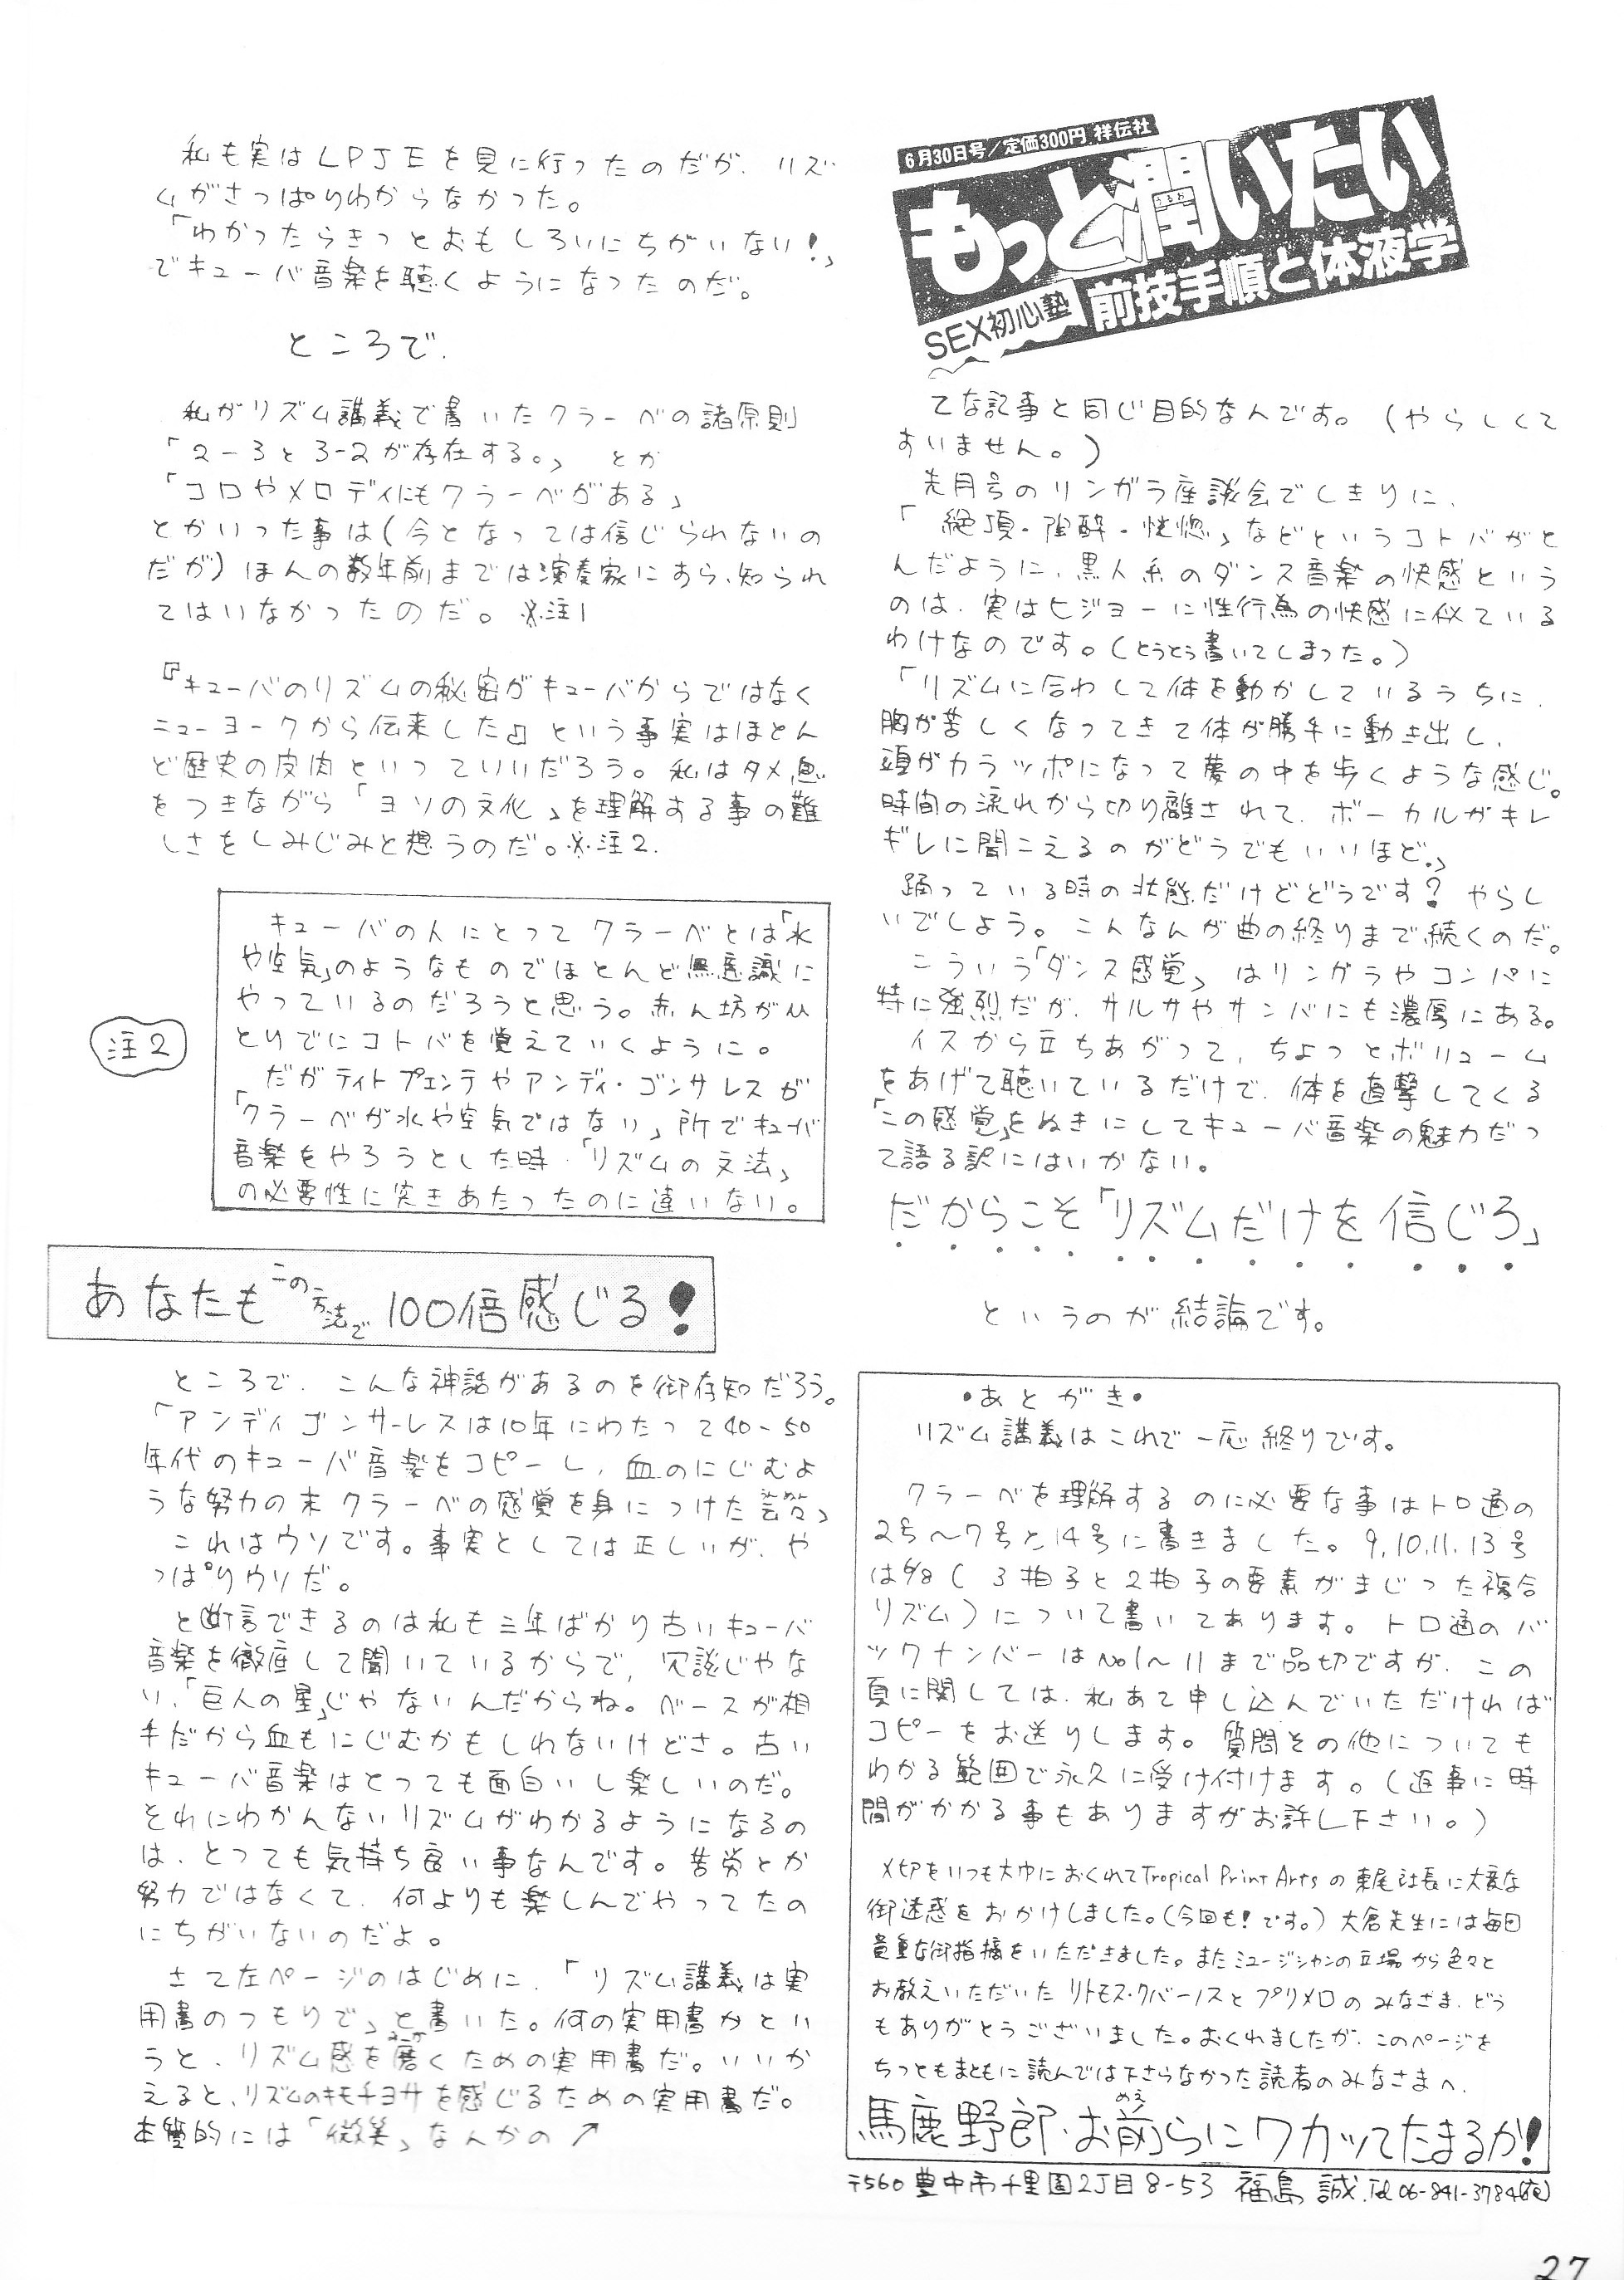 私も実はLPJEを見に行ったのだが、リズ
ムがさっぱりわからなかった。
「わかったらきっとおもしろいにちがいない!」
でキューバ音楽を聴くようになったのだ。
ところで、
私がリズム講義で書いたクラーベの諸原則
「2-3と3-2が存在する。」 とか
「コロやメロディにもクラーベがある」
とかいった事は(今となっては信じられないの
だが)ほんの数年前までは演奏家にすら、知られ
てはいなかったのだ。※注1
『キューバのリズムの秘密がキューバからではなく
ニューヨークから伝来した』という事実はほとん
ど歴史の皮肉といっていいだろう。私はタメ息
をつきながら「ヨソの文化」を理解する事の難
しさをしみじみと想うのだ。※注2.
注2
キューバの人にとってクラーベとは「水
や空気」のようなものでほとんど無意識に
やっているのだろうと思う。赤ん坊がひ
とりでにコトバを覚えていくように。
だがティトプエンテやアンディ・ゴンサレスが
「クラーベが水や空気ではない」所でキューバ
音楽をやろうとした時、「リズムの文法」
の必要性に突きあたったのに違いない。
あなたもこの方法で100倍感じる!
ところで、こんな神話があるのを御存知だろう。
「アンディゴンサーレスは10年にわたって40-50
年代のキューバ音楽をコピーし、血のにじむよ
うな努力の末クラーベの感覚を身につけた云々」
これはウソです。事実としては正しいが、や
っぱりウソだ。
と断言できるのは私も三年ばかり古いキューバ
音楽を徹底して聞いているからで、冗談じゃな
い、「巨人の星」じゃないんだからね。ベースが相
手だから血もにじむかもしれないけどさ。古い
キューバ音楽はとっても面白いし楽しいのだ。
それにわかんないリズムがわかるようになるの
は、とっても気持ち良い事なんです。苦労とか
努力ではなくて、何よりも楽しんでやってたの
にちがいないのだよ。
さて左ページのはじめに、「リズム講義は実
用書のつもりで」と書いた。何の実用書かとい
うと、リズム感を磨くための実用書だ。いいか
えると、リズムのキモチヨサを感じるための実用書だ。
本質的には「微笑」なんかの↗
6月30日号/定価300円 祥伝社
もっと潤いたい
うるお
SEX初心塾 前技手順と体液学
てな記事と同じ目的なんです。(やらしくて
すいません。)
先月号のリンガラ座談会でしきりに、
「絶頂・陶酔・恍惚」などというコトバがと
んだように、黒人系のダンス音楽の快感という
のは、実はヒジョーに性行為の快感に似ている
わけなのです。(とうとう書いてしまった。)
「リズムに合わして体を動かしているうちに、
胸が苦しくなってきて体が勝手に動き出し、
頭がカラッポになって夢の中を歩くような感じ。
時間の流れから切り離されて、ボーカルがキレ
ギレに聞こえるのがどうでもいいほど。」
踊っている時の状態だけどどうです?やらし
いでしょう。こんなんが曲の終りまで続くのだ。
こういう「ダンス感覚」はリンガラやコンパに
特に強烈だが、サルサやサンバにも濃厚にある。
イスから立ちあがって、ちょっとボリューム
をあげて聴いているだけで、体を直撃してくる
「この感覚」をぬきにしてキューバ音楽の魅力だっ
て語る訳にはいかない。
だからこそ「リズムだけを信じろ」
というのが結論です。
•あとがき•
リズム講義はこれで一応終りです。
クラーベを理解するのに必要な事はトロ通の
2号〜7号と14号に書きました。9.10.11.13号
は6/8(3拍子と2拍子の要素がまじった複合
リズム)について書いてあります。トロ通のバ
ックナンバーはNo1〜11まで品切ですが、この
頁に関しては、私あて申し込んでいただければ
コピーをお送りします。質問その他についても
わかる範囲で永久に受け付けます。(返事に時
間がかかる事もありますがお許し下さい。)
〆切をいつも大巾におくれてTropical Print Artsの東尾社長に大変な
御迷惑をおかけしました。(今回も!です。)大倉先生には毎回
貴重な御指摘をいただきました。またミュージシャンの立場から色々と
お教えいただいたリトモス・クバーノスとプリメロのみなさま、どう
もありがとうございました。おくれましたが、このページを
ちっともまともに読んでは下さらなかった読者のみなさまへ、
馬鹿野郎・お前らにワカッてたまるか!
めえ
〒560 豊中市千里園2丁目8-53 福島 誠. Tel 06-841-3784(宅)
27